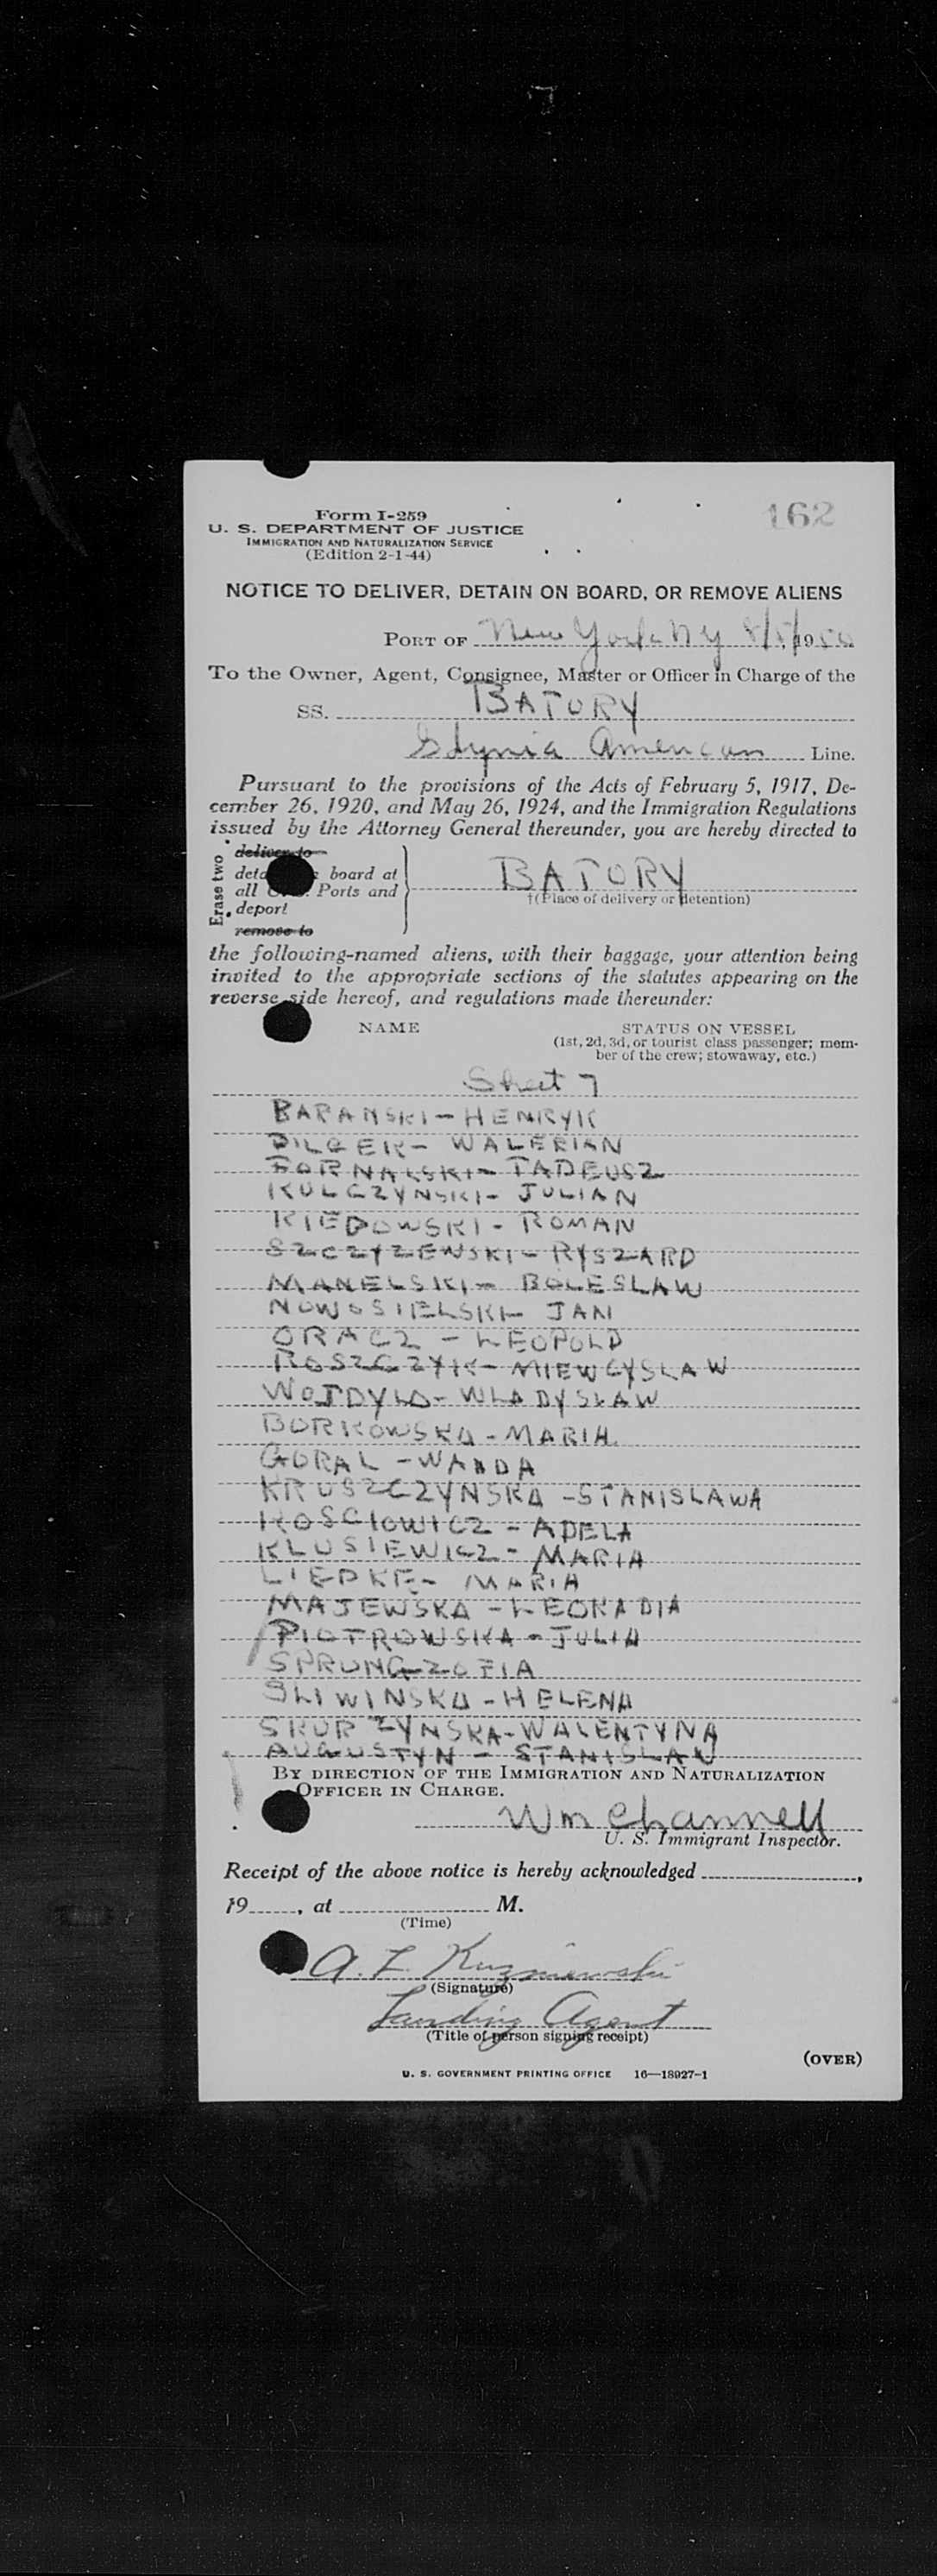 162
Form I-259
U. S. DEPARTMENT OF JUSTICE
IMMIGRATION AND NATURALIZATION SERVICE
(Edition 2-1-44)
NOTICE TO DELIVER, DETAIN ON BOARD, OR REMOVE ALIENS
PORT OF New York NY 8/5/1950
To the Owner, Agent, Consignee, Master or Officer in Charge of the
SS. BATORY
Gdynia American Line.
Pursuant to the provisions of the Acts of February 5, 1917, De-
cember 26, 1920, and May 26, 1924, and the Immigration Regulations
issued by the Attorney General thereunder, you are hereby directed to
Erase two
deliver to
board at
all Ports and
deport
remove to
BATORY
†(Place of delivery or detention)
the following-named aliens, with their baggage, your attention being
invited to the appropriate sections of the statutes appearing on the
reverse side hereof, and regulations made thereunder:
NAME
STATUS ON VESSEL
(1st, 2d, 3d, or tourist class passenger; mem-
ber of the crew; stowaway, etc.)
Sheet 7
BARANSKI - HENRYK
DILGER - WALERIAN
FORNALSKI - TADEUSZ
KULCZYNSKI - JULIAN
KIEDOWSKI - ROMAN
SZCZYZEWSKI - RYSZARD
MANELSKI - BOLESLAW
NOWOSIELSKI - JAN
ORACZ - LEOPOLD
ROSZCZYK - MIEWCYSLAW
WOJDYLO - WLADYSLAW
BORKOWSKA - MARIA
GORAL - WANDA
KRUSZCZYNSKA - STANISLAWA
KOSCIOWICZ - ADELA
KLUSIEWICZ - MARIA
LIEPKE - MARIA
MAJEWSKA - LEOKADIA
PIOTROWSKA - JULIA
SPRUNG - ZOFIA
SLIWINSKA - HELENA
SKUR ZYNSKA - WALENTYNA
AUGUSTYN - STANISLAW
BY DIRECTION OF THE IMMIGRATION AND NATURALIZATION
OFFICER IN CHARGE.
Wm Channell
U. S. Immigrant Inspector.
Receipt of the above notice is hereby acknowledged ,
19 , at M.
(Time)
A. L. Kuzniewski
(Signature)
Landing Agent
(Title of person signing receipt)
(OVER)
U. S. GOVERNMENT PRINTING OFFICE 16—18927-1